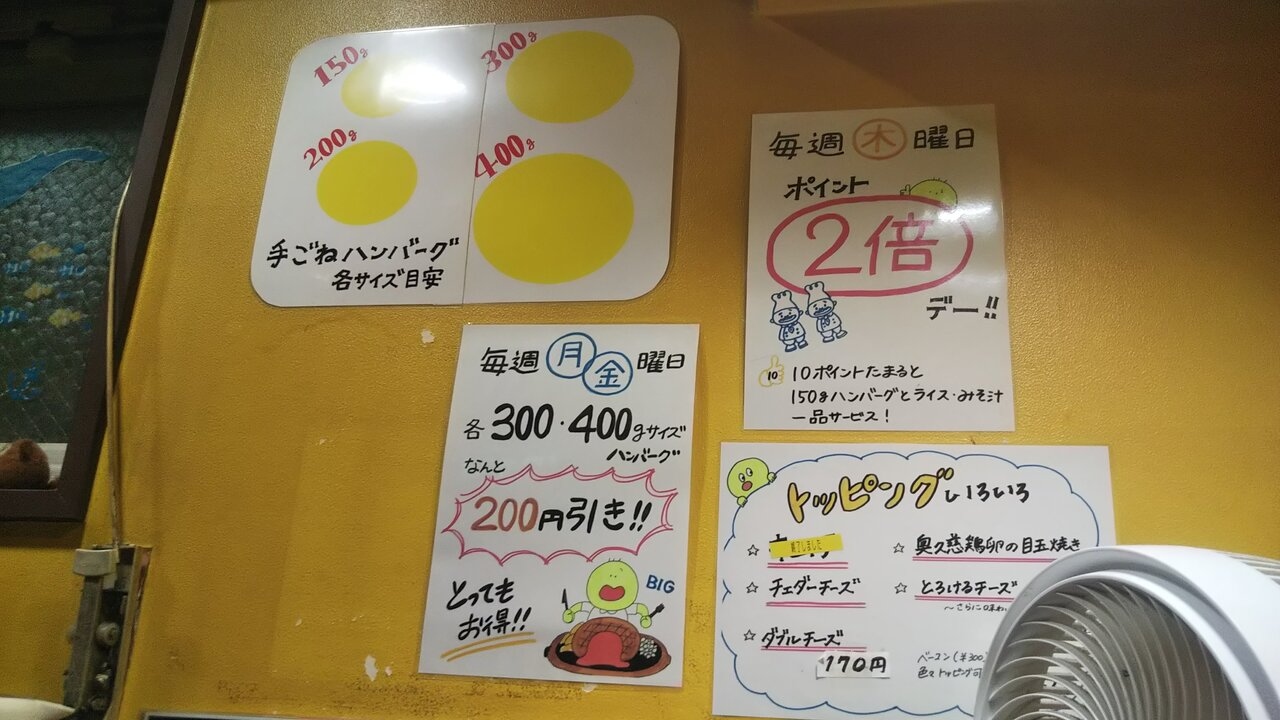 150g
300g
200g
400g
手ごねハンバーグ
各サイズ目安
毎週木曜日
ポイント
2倍
デー!!
10
10ポイントたまると
150gハンバーグとライス・みそ汁
一品サービス!
毎週月金曜日
各300・400gサイズ
ハンバーグ
なんと
200円引き!!
とっても
お得!!
BIG
トッピングいろいろ
☆ 終了しました
☆ 奥久慈鶏卵の目玉焼き
☆ チェダーチーズ
☆ とろけるチーズ
〜さらに口味わ
☆ ダブルチーズ
170円
ベーコン(¥300)
色々トッピング可